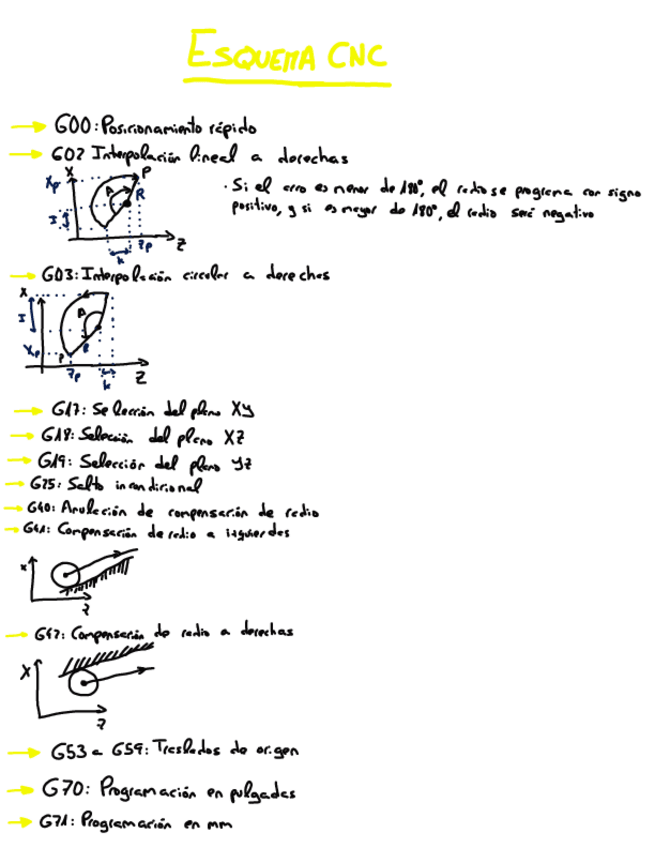 ESQUEMA CNC
G00: Posicionamiento rápido
G02 Interpolación lineal a derechas
X P
Xp A R
I
K Zp Z
· Si el arco es menor de 180°, el radio se programa con signo
positivo, y si es mayor de 180°, el radio será negativo
G03: Interpolación circular a derechas
X
I A
Xp P R
Zp K Z
G17: Selección del plano XY
G18: Selección del plano XZ
G19: Selección del plano YZ
G25: Salto incondicional
G40: Anulación de compensación de radio
G41: Compensación de radio a izquierdas
X
Z
G42: Compensación de radio a derechas
X
Z
G53 a G59: Traslados de origen
G70: Programación en pulgadas
G71: Programación en mm